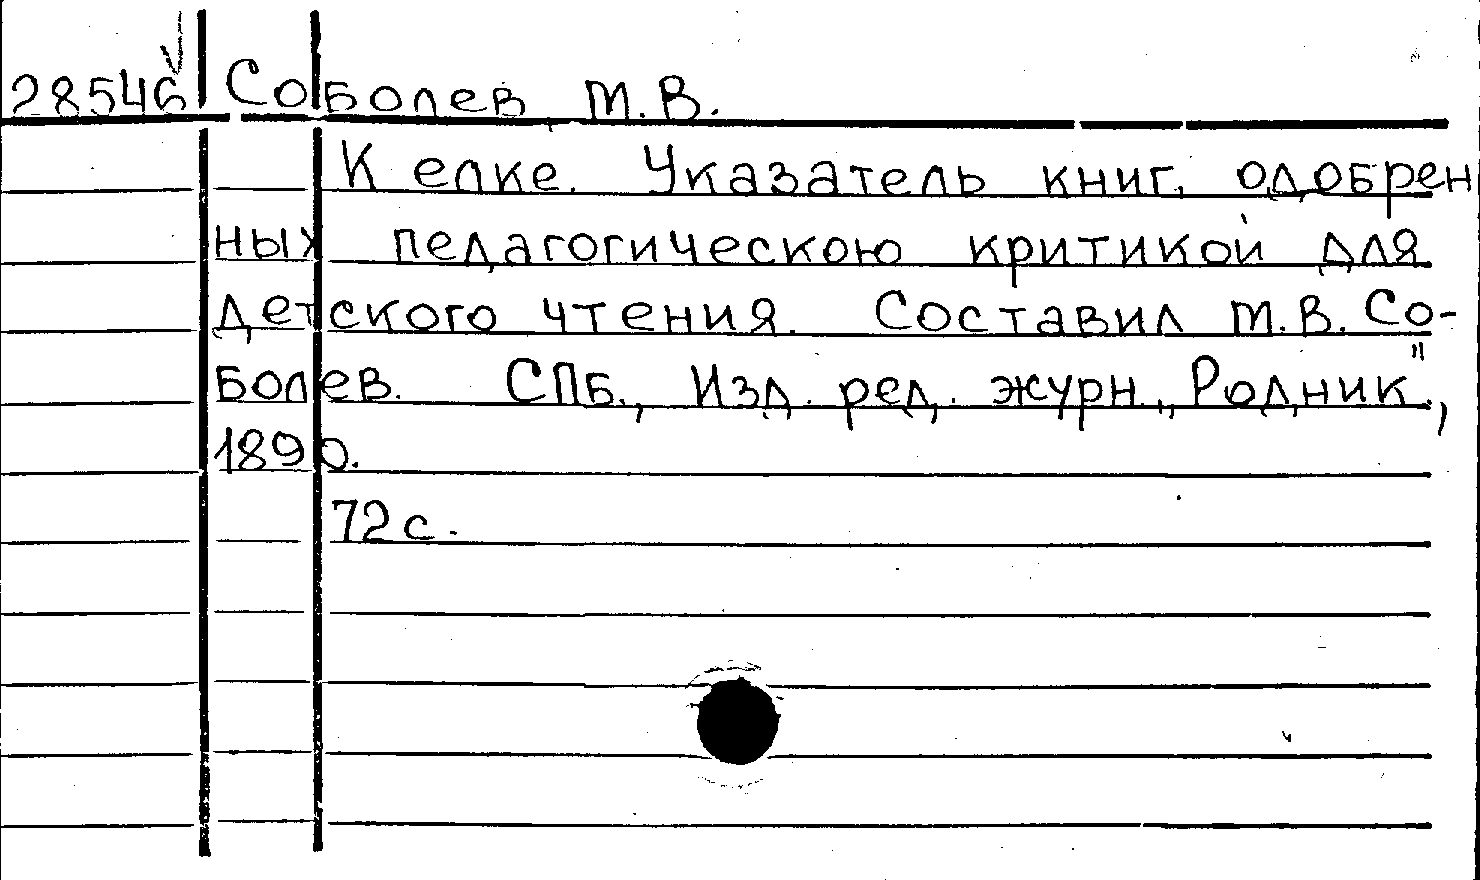 28546 Соболев, М.В.
К елке. Указатель книг, одобрен
ных педагогическою критикой для
детского чтения. Составил М.В. Со-
болев. СПБ., Изд. ред. журн. „Родник",
1890.
72 с.